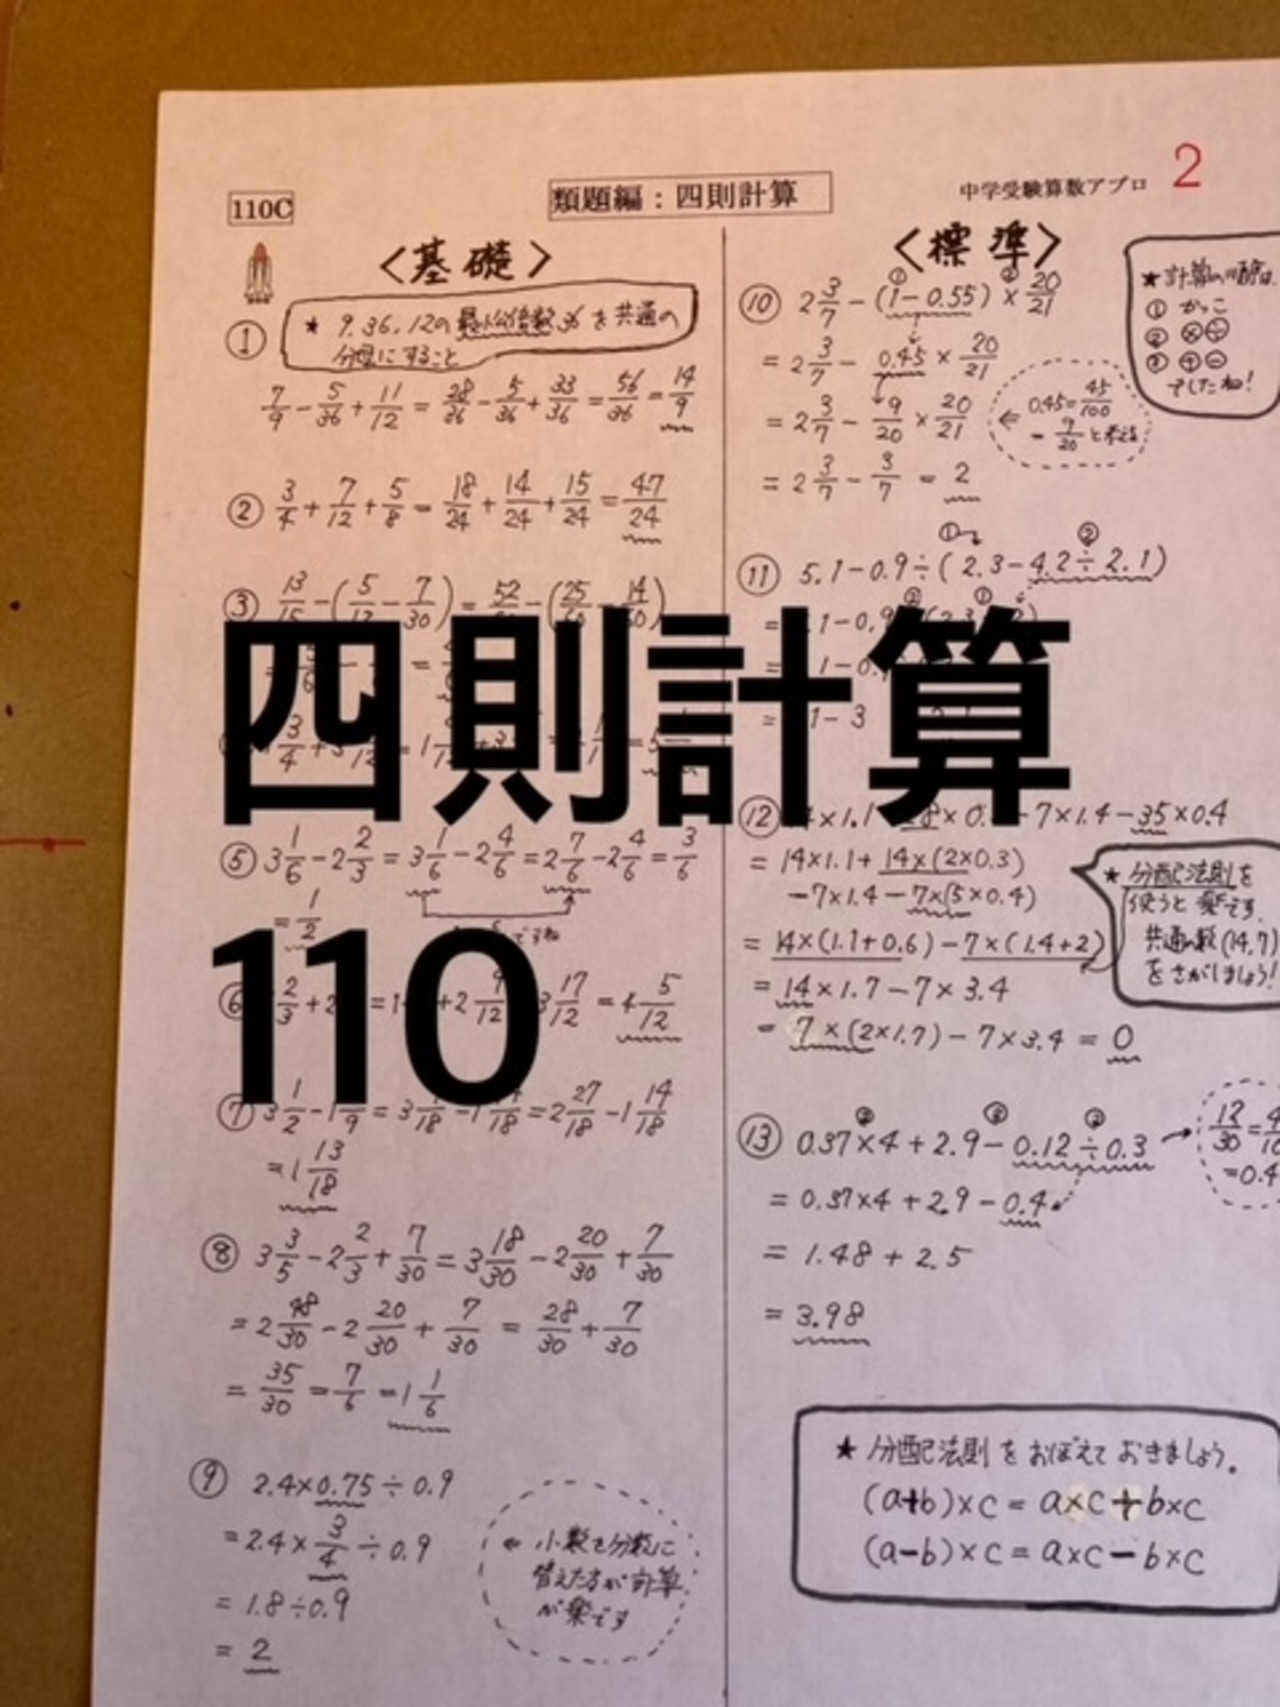 110C
類題編:四則計算
中学受験算数アプロ
2
〈基礎〉
★ 9.36.12の最小公倍数36を共通の
分母にすること
① 7/9 - 5/36 + 11/12 = 28/36 - 5/36 + 33/36 = 56/36 = 14/9
② 3/4 + 7/12 + 5/8 = 18/24 + 14/24 + 15/24 = 47/24
③ 13/15 - (
- 7/30) = 52/
- (25/
四則計算
110
⑤ 3 1/6 - 2 2/3 = 3 1/6 - 2 4/6 = 2 7/6 - 2 4/6 = 3/6
= 1/2
ですね
⑥
17/12 = 4 5/12
⑦ 3 1/2 - 1
/9 = 3
/18 - 1
/18 = 2 27/18 - 1 14/18
= 1 13/18
⑧ 3 3/5 - 2 2/3 + 7/30 = 3 18/30 - 2 20/30 + 7/30
= 2 48/30 - 2 20/30 + 7/30 = 28/30 + 7/30
= 35/30 = 7/6 = 1 1/6
⑨ 2.4×0.75÷0.9
= 2.4 × 3/4 ÷ 0.9
= 1.8÷0.9
= 2
← 小数を分数に
替えた方が計算
が楽です
〈標準〉
★計算の順序は
① かっこ
② ⊗⊕
③ ⊕⊖
でしたね!
⑩ 2 3/7 - (1 - 0.55) × 20/21
① ②
= 2 3/7 - 0.45 × 20/21
= 2 3/7 - 9/20 × 20/21
⇐ 0.45 = 45/100
= 9/20 と考える
= 2 3/7 - 3/7 = 2
① ②
⑪ 5.1-0.9÷(2.3-4.2÷2.1)
⑫
×1.1
×0.
-7×1.4-35×0.4
= 14×1.1+14×(2×0.3)
-7×1.4-7×(5×0.4)
= 14×(1.1+0.6)-7×(1.4+2)
= 14×1.7-7×3.4
= 7×(2×1.7)-7×3.4 = 0
★分配法則を
使うと楽です
共通の数(14,7)
をさがしましょう!
⑬ 0.37×4+2.9-0.12÷0.3
= 0.37×4+2.9-0.4
= 1.48+2.5
= 3.98
12/30=4/10
=0.4
★分配法則をおぼえておきましょう。
(a+b)×c = a×c+b×c
(a-b)×c = a×c-b×c